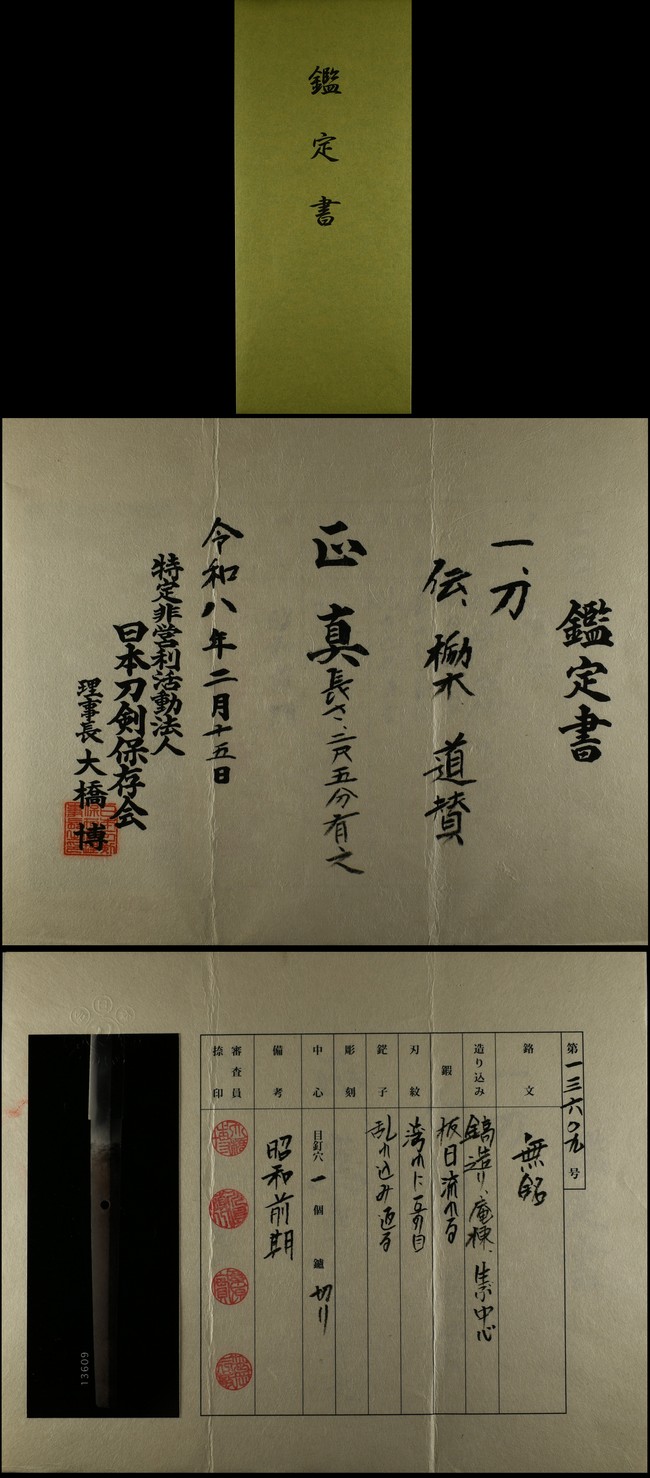 鑑定書
鑑定書
一、刀
伝、栃木 道賛
正真
長さ、二尺五分有之
令和八年二月十五日
特定非営利活動法人
日本刀剣保存会
理事長 大橋 博
第一三六〇九号
銘文
無銘
造り込み
鎬造り、庵棟、生ぶ中心
鍜
板目流れる
刃紋
湾れに互の目
鋩子
乱れ込み返る
彫刻
中心
目釘穴 一 個 鑢 切り
備考
昭和前期
審査員
捺印
13609